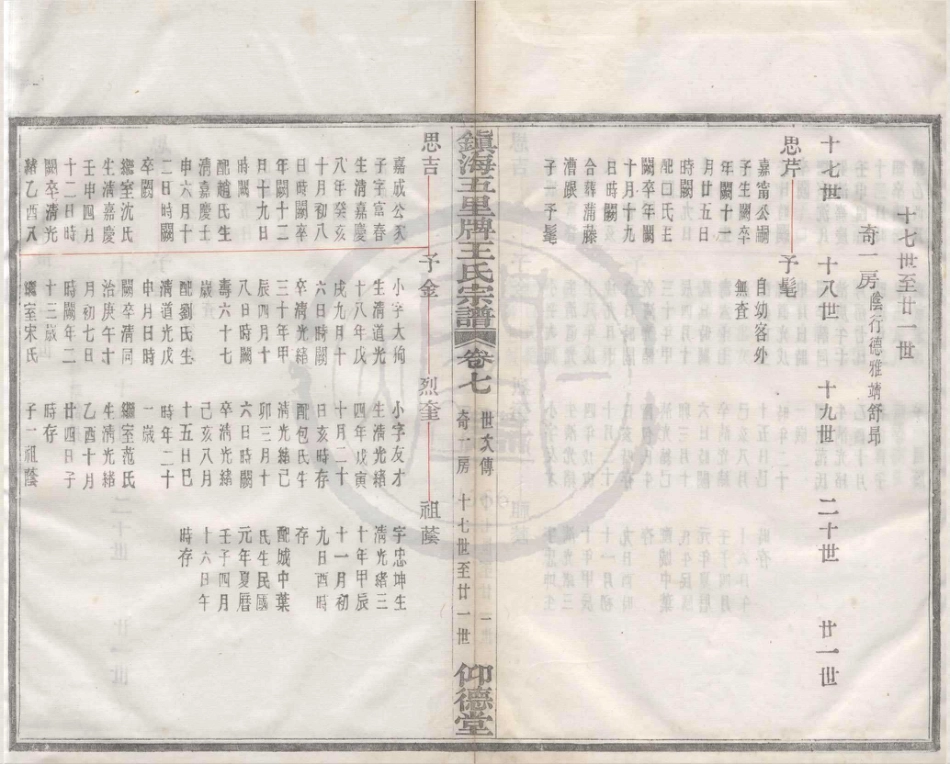 十七世至廿一世
奇一房 陰行德雅靖舒昂
十七世 十八世 十九世 二十世 廿一世
思芹
嘉甯公嗣
子生闕卒
年闕十一
月廿五日
時闕
配口氏生
闕卒年闕
十月十九
日時闕
合葬蒲藤
漕㫁
子一予髦
予髦
自幼客外
無查
鎮海五里牌王氏宗譜 卷七 世次傳 奇一房 十七世至廿一世 仰德堂
思吉
嘉成公次
子字富春
生清嘉慶
八年癸亥
十月初八
日時闕卒
年闕十二
月十九日
時闕
配趙氏生
清嘉慶壬
申六月十
二日時闕
卒闕
繼室沈氏
生清嘉慶
壬申四月
十二日時
闕卒清光
緒乙酉八
予金
小字大炯
生清道光
十八年戊
戌九月十
六日時闕
卒清光緒
三十年甲
辰四月十
八日時闕
壽六十七
歲
配劉氏生
清道光戊
申月日時
闕卒清同
治庚午十
月初七日
時闕年二
十三歲
繼室宋氏
烈奎
小字友才
生清光緒
四年戊寅
十月二十
日亥時存
配包氏生
清光緒己
卯三月十
六日時闕
卒清光緒
己亥八月
十五日巳
時年二十
一歲
繼室范氏
生清光緒
乙酉十月
廿四日子
時存
子一祖蔭
祖蔭
字忠坤生
清光緒三
十年甲辰
十一月初
九日酉時
存
配城中葉
氏生民國
元年夏曆
壬子四月
十六日午
時存